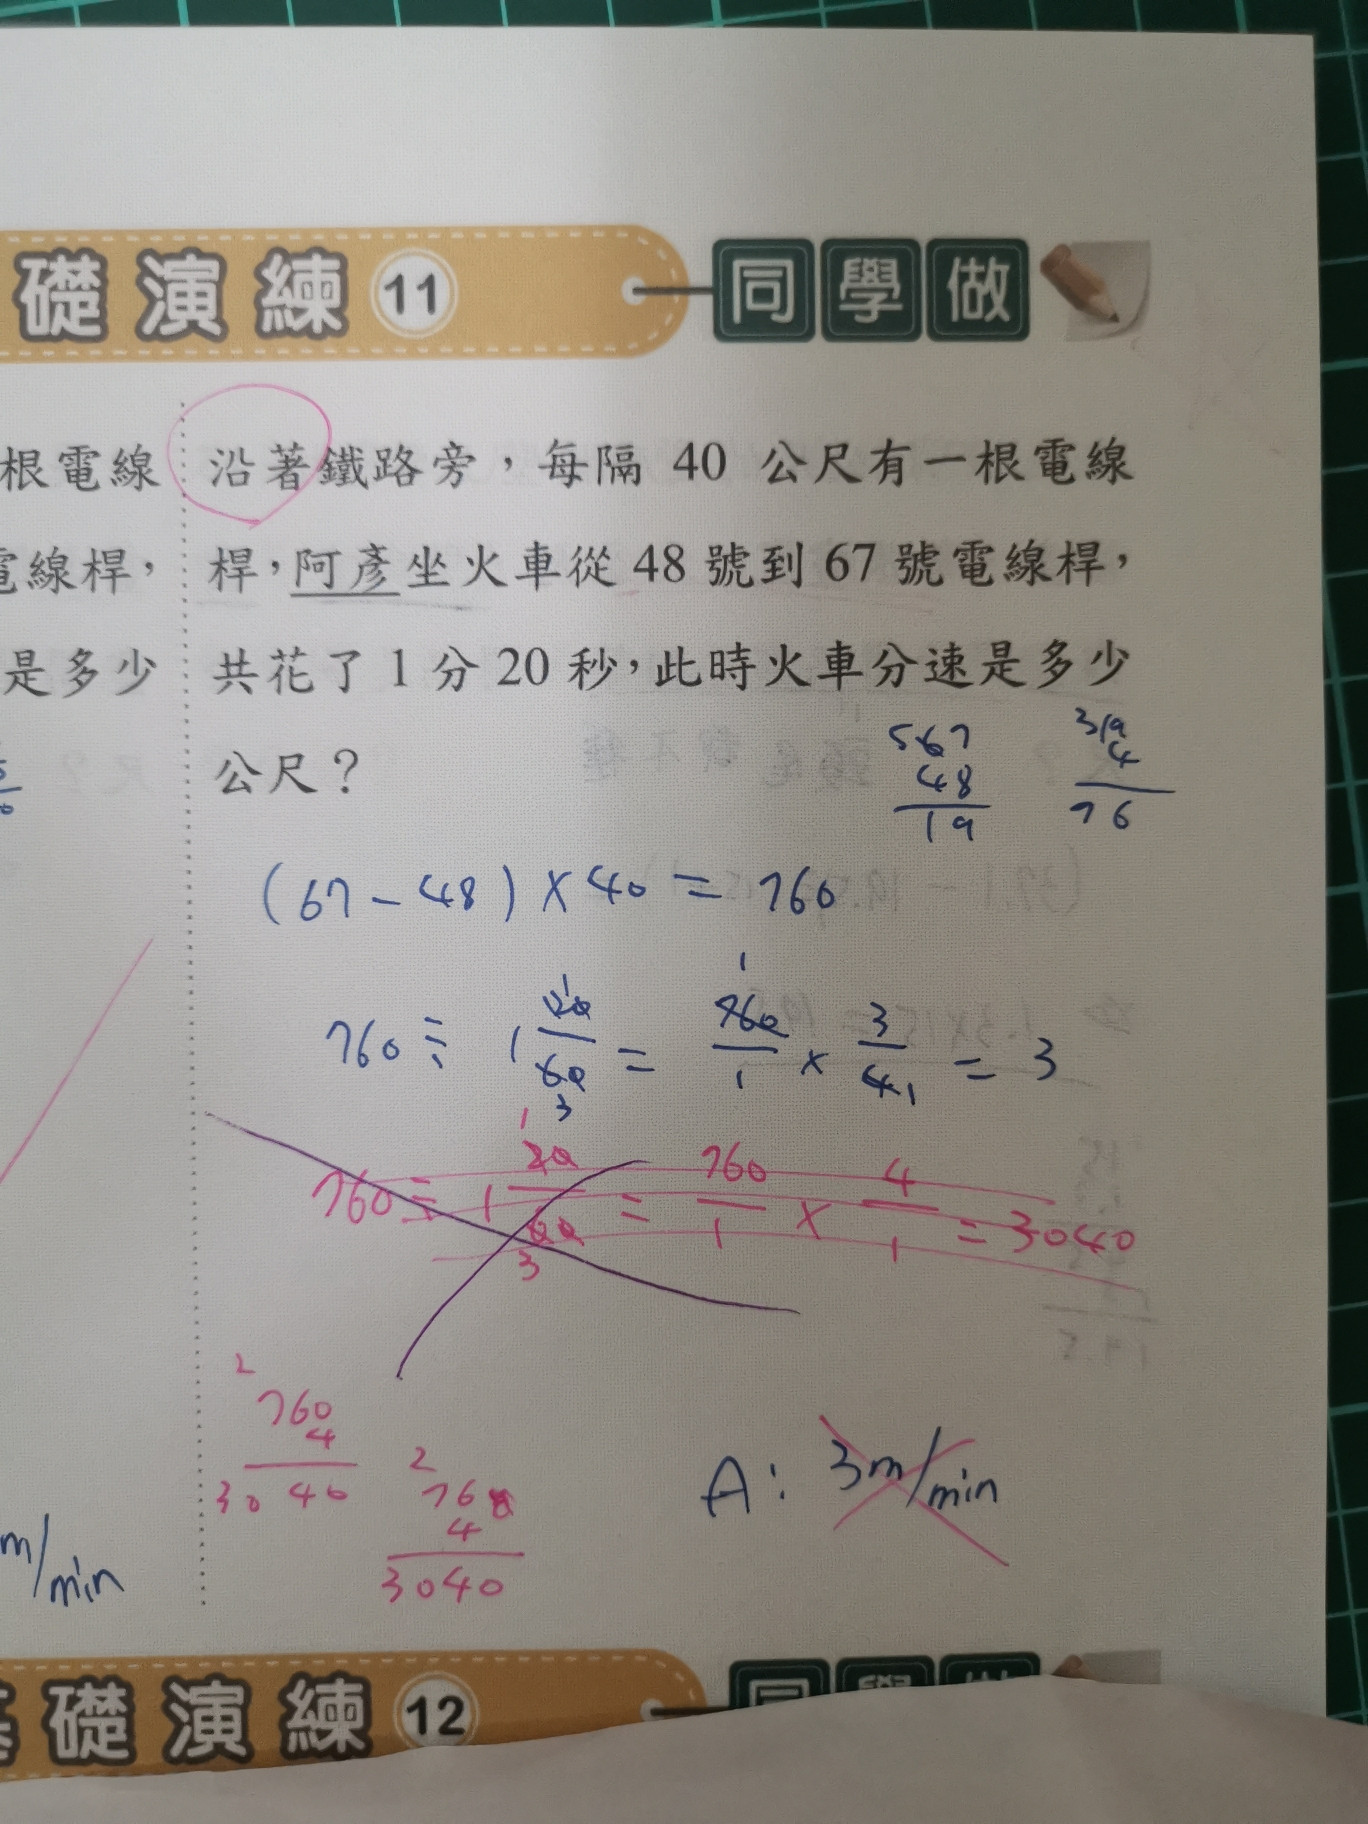 礎演練 11 同學做
根電線
電線桿，
是多少
m/min
沿著鐵路旁，每隔 40 公尺有一根電線
桿，阿彥坐火車從 48 號到 67 號電線桿，
共花了 1 分 20 秒，此時火車分速是多少
公尺？
567
48
19
319
4
76
(67-48)×40=760
760÷1 20/60 = 760/1 × 3/4 = 3
760÷1 20/60 = 760/1 × 4/1 = 3040
2
760
4
3040
2
760
4
3040
A: 3m/min
基礎演練 12 同學做